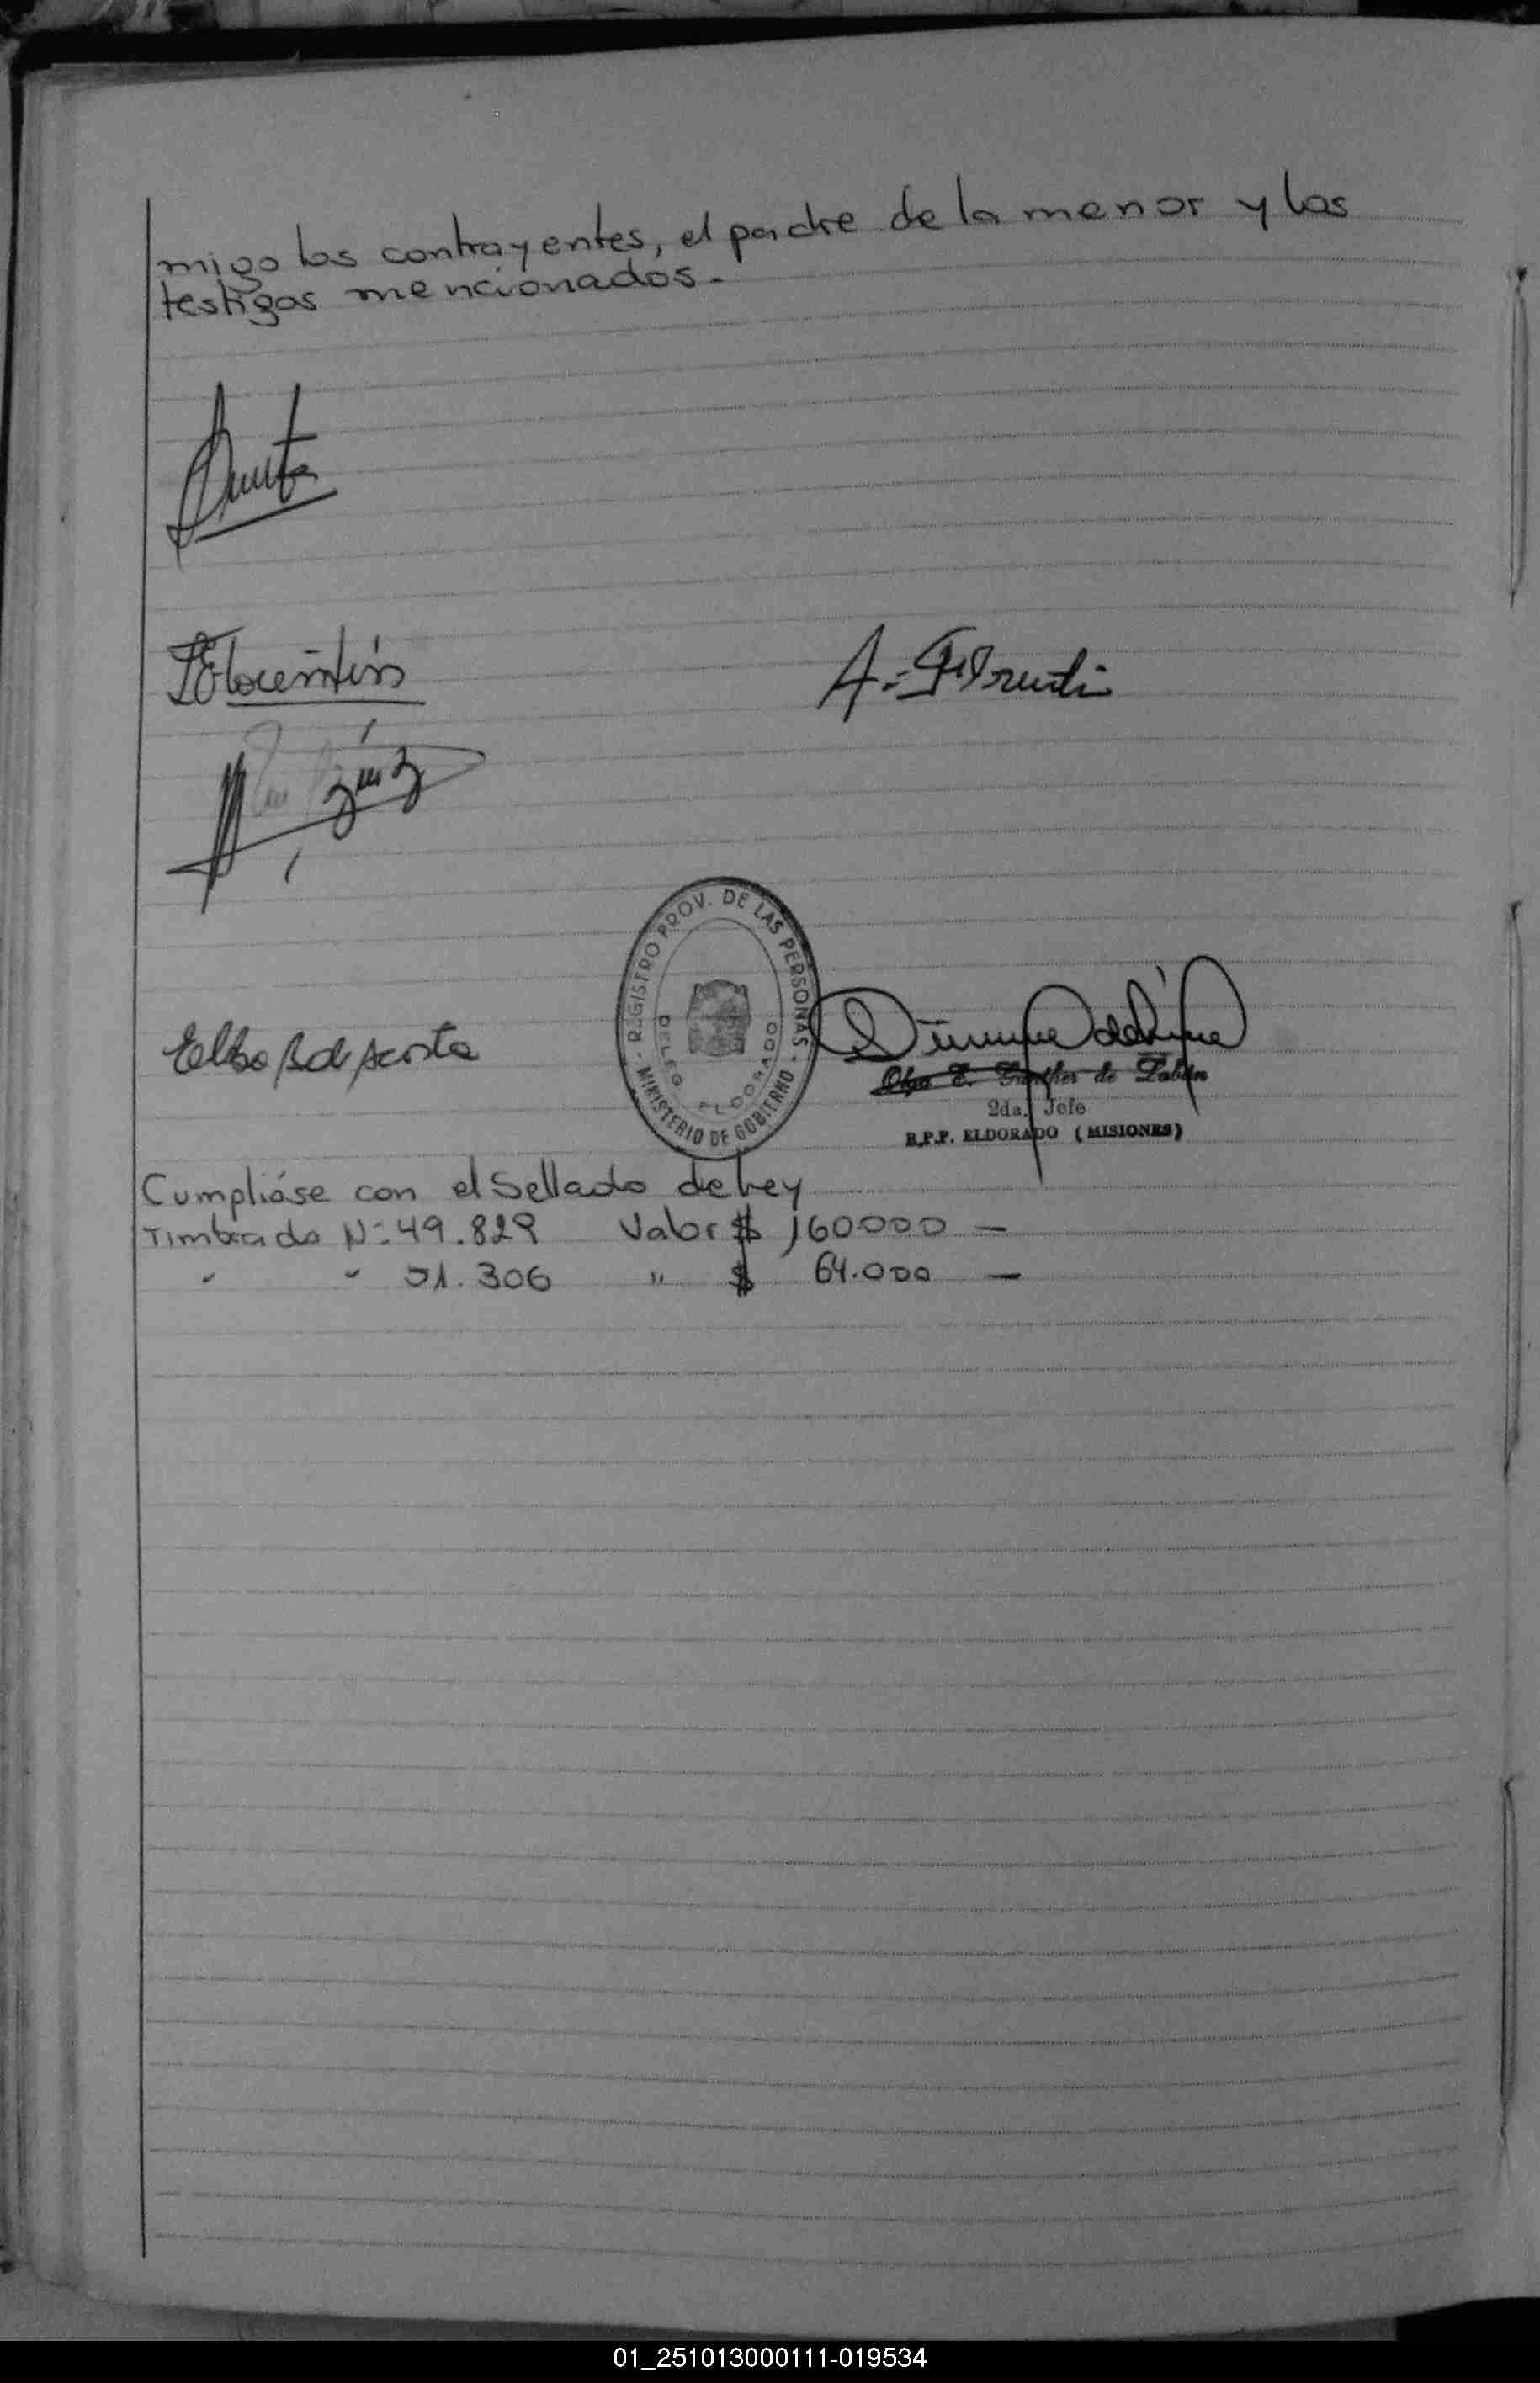 migo los contrayentes, el padre de la menor y los
testigos mencionados.-
Florentín
A.
Elba B de Acosta
- REGISTRO PROV. DE LAS PERSONAS -
MINISTERIO DE GOBIERNO
DELEG. ELDORADO
Olga E. Günther de
2da. Jefe
R.P.P. ELDORADO (MISIONES)
Cumpliáse con el Sellado de Ley
Timbrado Nº 49.829 Valor $ 160000 —
" " 51.306 " $ 64.000 —
01_251013000111-019534